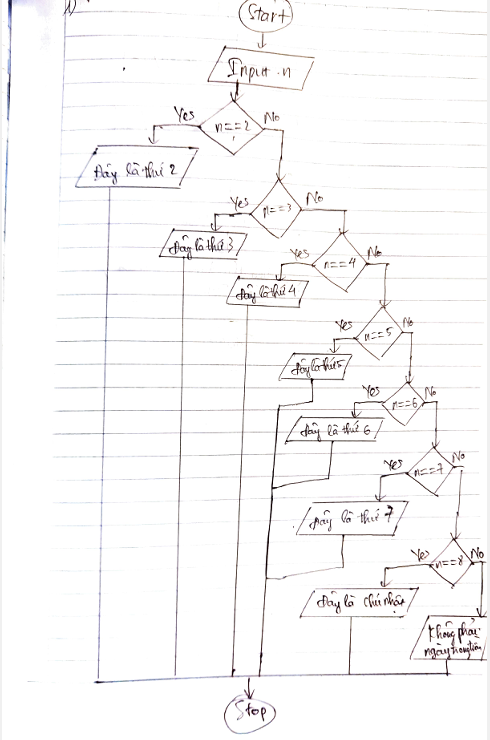 1)
Start
Input n
Yes
n==2
No
Đây là thứ 2
Yes
n==3
No
Đây là thứ 3
Yes
n==4
No
Đây là thứ 4
Yes
n==5
No
Đây là thứ 5
Yes
n==6
No
Đây là thứ 6
Yes
n==7
No
Đây là thứ 7
Yes
n==8
No
Đây là chủ nhật
Không phải
ngày trong tuần
Stop